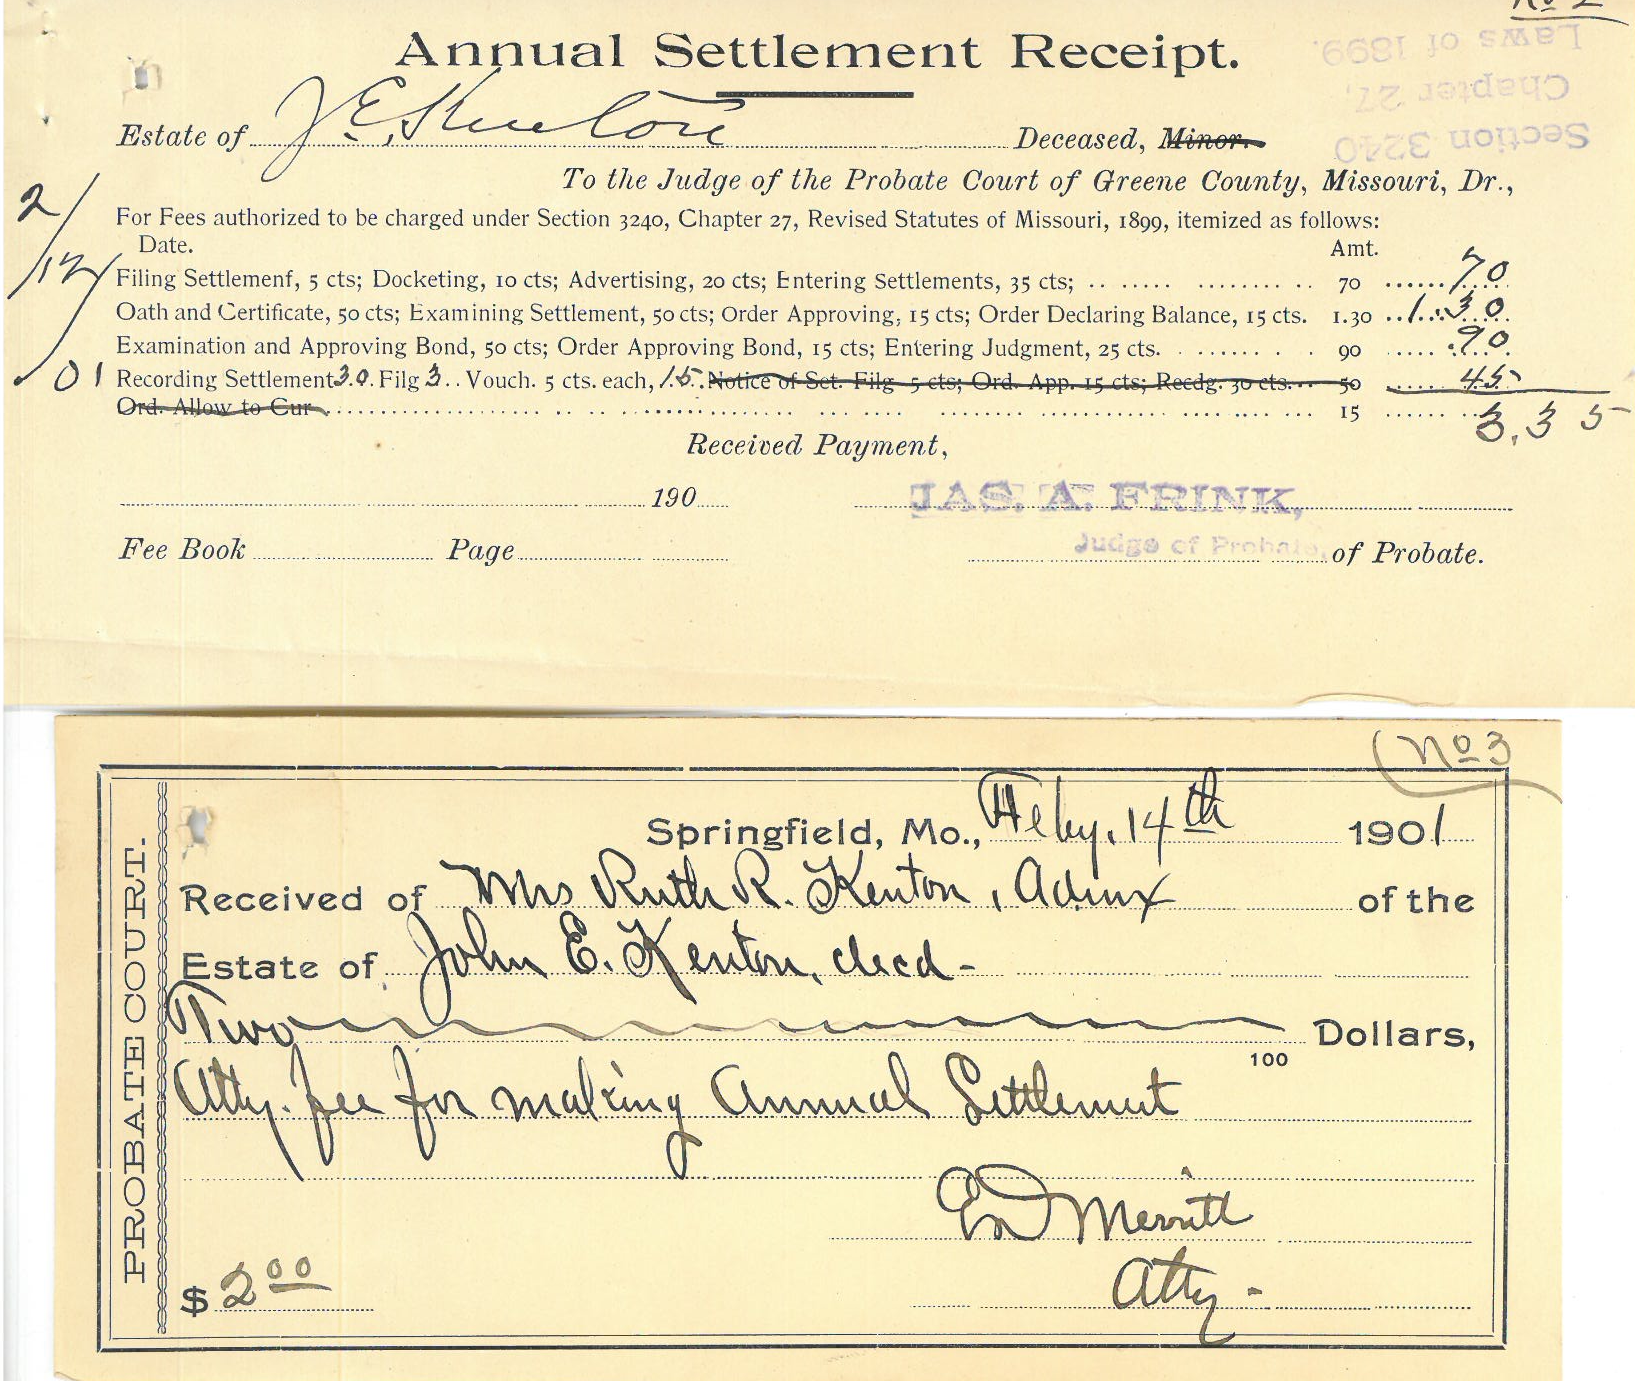 No 2
Annual Settlement Receipt.
Laws of 1899.
Chapter 27,
Section 3240
Estate of J. E. Kenton Deceased, Minor.
To the Judge of the Probate Court of Greene County, Missouri, Dr.,
2/12/01
For Fees authorized to be charged under Section 3240, Chapter 27, Revised Statutes of Missouri, 1899, itemized as follows:
Date. Amt.
Filing Settlement, 5 cts; Docketing, 10 cts; Advertising, 20 cts; Entering Settlements, 35 cts; 70 70
Oath and Certificate, 50 cts; Examining Settlement, 50 cts; Order Approving, 15 cts; Order Declaring Balance, 15 cts. 1.30 1.30
Examination and Approving Bond, 50 cts; Order Approving Bond, 15 cts; Entering Judgment, 25 cts. 90 .90
Recording Settlement 30. Filg 3 Vouch. 5 cts. each, 15. Notice of Set. Filg 5 cts; Ord. App. 15 cts; Recdg. 30 cts. 50 45
Ord. Allow to Cur 15 3.35
Received Payment,
190 JAS. A. FRINK,
Judge of Probate,
Fee Book Page of Probate.
No 3
PROBATE COURT.
Springfield, Mo., Feby. 14th 1901
Received of Mrs Ruth R. Kenton, Admx of the
Estate of John E. Kenton, decd-
Two 100 Dollars,
Atty. fee for making Annual Settlement
ED Merritt
$ 2 00 Atty-